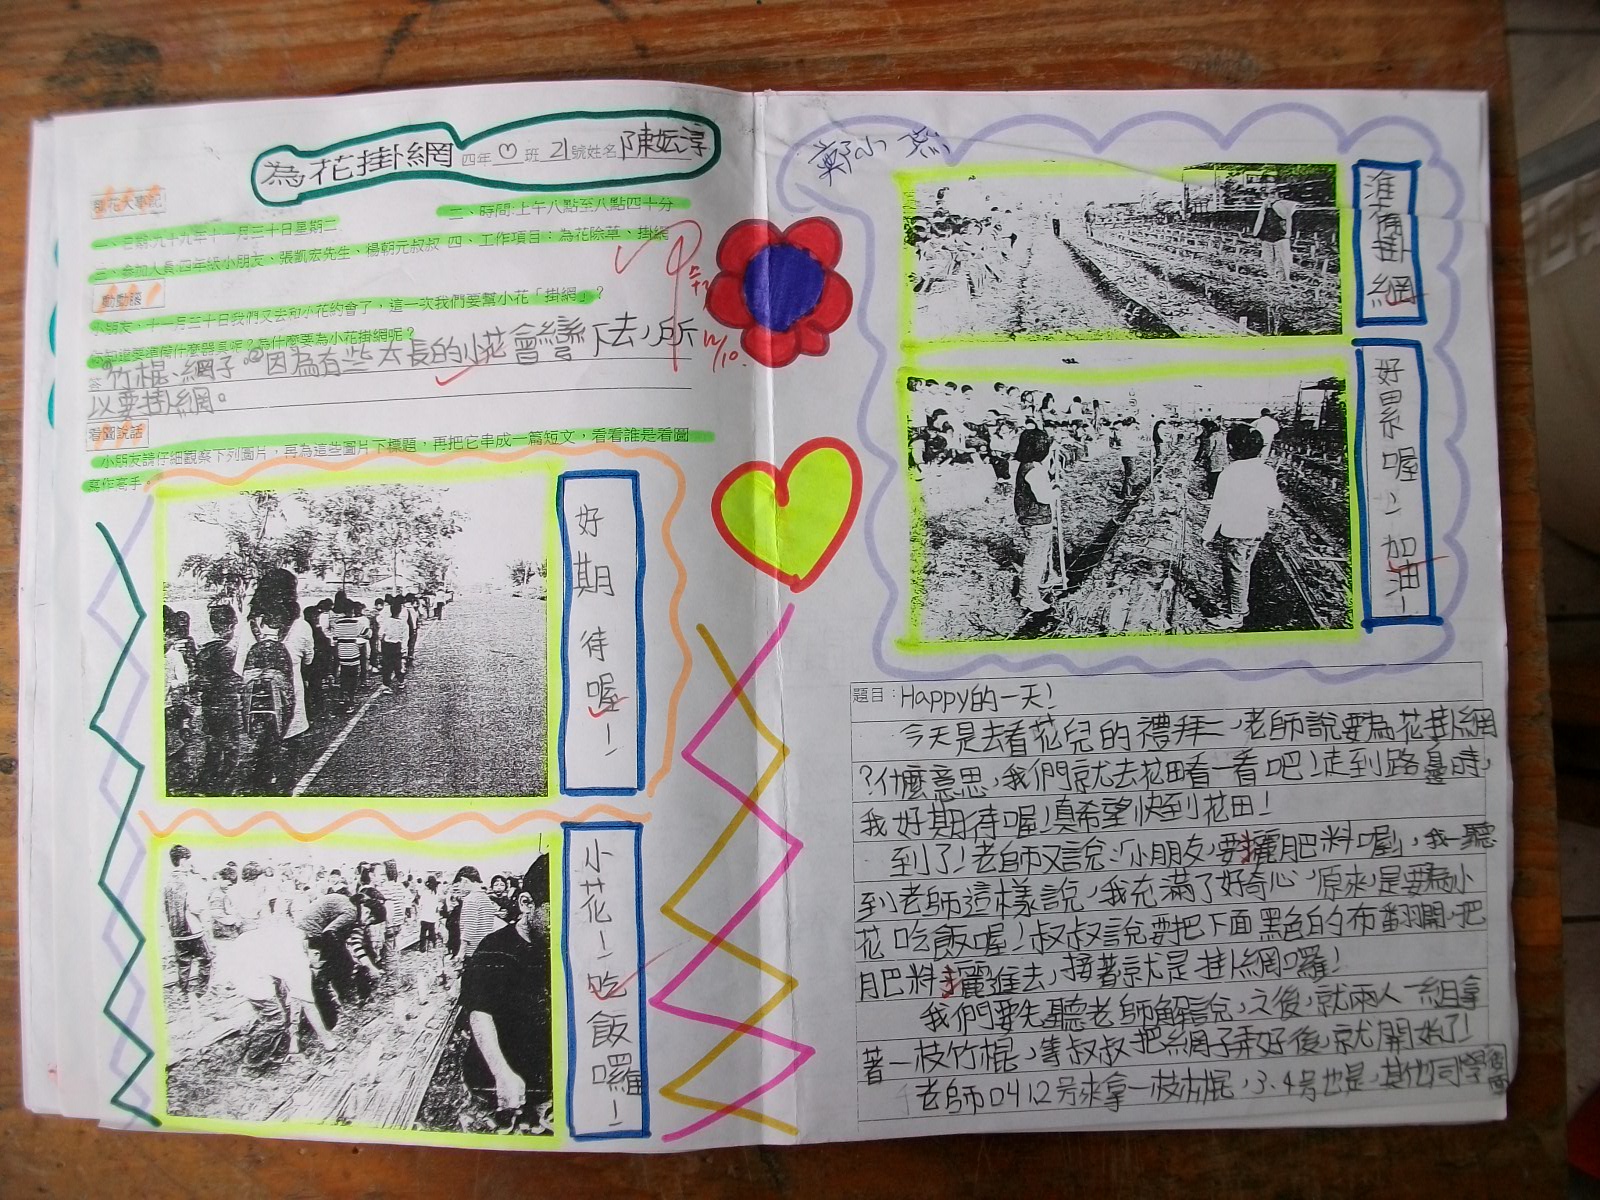 為花掛網 四年♡班 21號姓名陳妘淳
二、時間:上午八點至八點四十分
一、日期:九十九年十一月三十日星期二
三、參加人員:四年級小朋友、張凱宏先生、楊朝元叔叔 四、工作項目：為花除草、掛網
動動腦
小朋友，十一月三十日我們又去和小花約會了，這一次我們要幫小花「掛網」？
為什麼要為小花掛網呢？
答 竹棍、網子。②因為有些太長的小花會彎下去，所
以要掛網。
看圖說話
小朋友請仔細觀察下列圖片，再為這些圖片下標題，再把它串成一篇短文，看看誰是看圖
寫作高手。
好期待喔！
小花！吃飯囉！
12/10.
鄭小燕
準備掛網
好累喔！加油！
題目：Happy的一天！
今天是去看花兒的禮拜二，老師說要為花掛網
？什麼意思，我們就去花田看一看吧！走到路邊時，
我好期待喔！真希望快到花田！
到了！老師又說：「小朋友，要灑肥料喔！，我一聽
到老師這樣說，我充滿了好奇心，原來，是要為小
花吃飯喔！叔叔說要把下面黑色的布翻開，把
肥料灑進去，接著就是掛網囉！
我們要先聽老師解說，之後，就兩人一組拿
著一枝竹棍，等叔叔把網子弄好後，就開始了！
老師叫1.2号來拿一枝竹棍，3.4号也是，其他同學